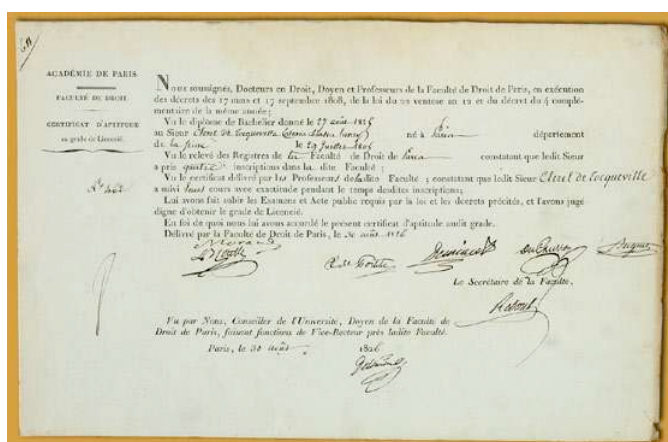 ACADÉMIE DE PARIS.
FACULTÉ DE DROIT.
CERTIFICAT D'APTITUDE
au grade de Licencié.
Nº 462
Nous soussignés, Docteurs en Droit, Doyen et Professeurs de la Faculté de Droit de Paris, en exécution
des décrets des 17 mars et 17 septembre 1808, de la loi du 22 ventose an 12 et du décret du 4 complé-
mentaire de la même année;
Vu le diplôme de Bachelier donné le 27 août 1825
au Sieur Clerel de Tocqueville né à Paris département
de la Seine le 29 Juillet 1805
Vu le relevé des Registres de la Faculté de Droit de Paris constatant que ledit Sieur
a pris inscriptions dans la dite Faculté;
Vu le certificat délivré par les Professeurs de ladite Faculté; constatant que ledit Sieur Clerel de Tocqueville
a suivi cours avec exactitude pendant le temps desdites inscriptions;
Lui avons fait subir les Examens et Acte public requis par la loi et les décrets précités, et l'avons jugé
digne d'obtenir le grade de Licencié.
En foi de quoi nous lui avons accordé le présent certificat d'aptitude audit grade.
Délivré par la Faculté de Droit de Paris, le 30 août 1826
Le Secrétaire de la Faculté,
Vu par Nous, Conseiller de l'Université, Doyen de la Faculté de
Droit de Paris, faisant fonctions de Vice-Recteur près ladite Faculté.
Paris, le 30 août 1826